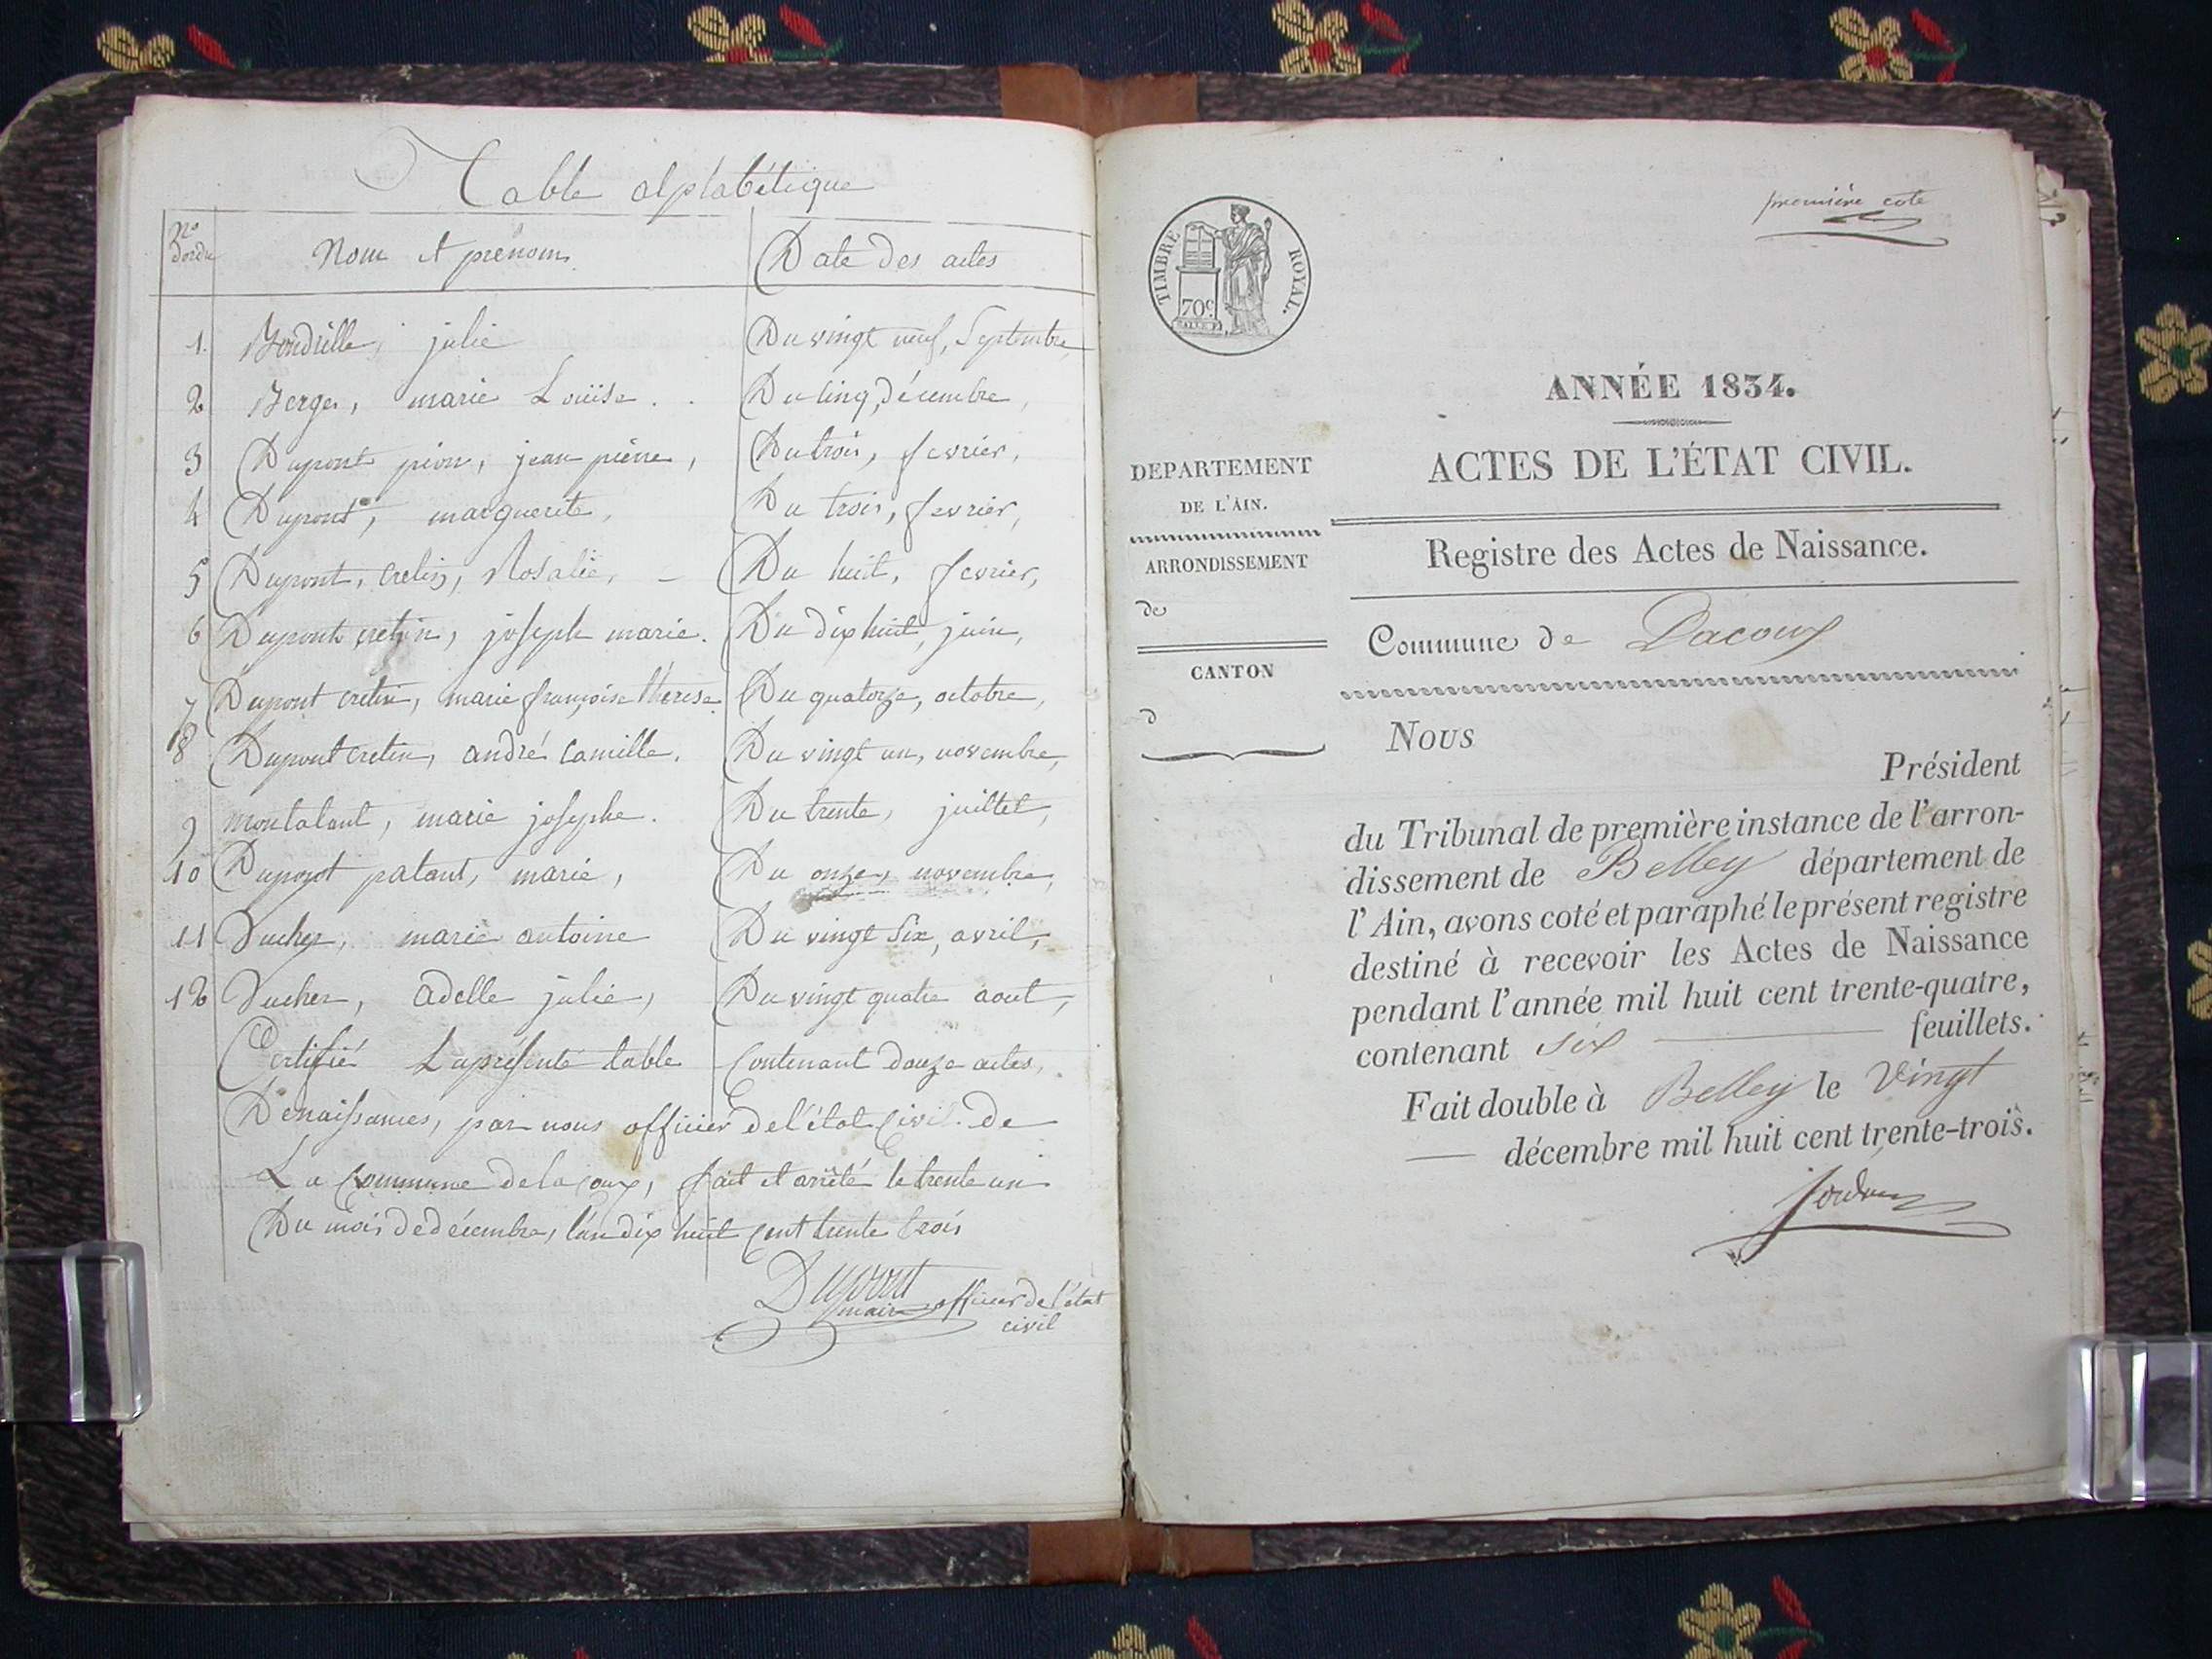 Table alphabétique
No
Dordre
Nom et prénom
Date des actes
1. Bondrille, julie
Du vingt neuf, Septembre,
2 Berger, marie Louïse . .
Du Cinq, décembre,
3 Dupont pion, jean pierre,
Du trois, fevrier,
4 Dupont, marguerite,
Du trois, fevrier,
5 Dupont, cretin, Rosalie, –
Du huit, fevrier,
6 Dupont cretin, joseph marie.
Du dix huit, juin,
7 Dupont cretin, marie françoise thérese
Du quatorze, octobre,
8 Dupont cretin, andré Camille.
Du vingt un, novembre,
9 montalant, marie josephe.
Du trente, juillet,
10 Dupont patant, marie,
Du onze, novembre,
11 Vucher, marie antoine
Du vingt Six, avril,
12 Vucher, adelle julie,
Du vingt quatre aout,
Certifié Laprésente table Contenant douze actes,
Denaissances, par nous officier de l'état Civil de
La Commune delacoux, fait et arrêté le trente un
Du mois de décembre, l'an dix huit cent trente trois
Dupont
maire officier de l'état
civil
première cote
TIMBRE ROYAL.
70c
ANNÉE 1834.
ACTES DE L'ÉTAT CIVIL.
DEPARTEMENT
DE L'AIN.
ARRONDISSEMENT
de
CANTON
d
Registre des Actes de Naissance.
Commune de Lacoux
Nous
Président
du Tribunal de première instance de l'arron-
dissement de Belley département de
l'Ain, avons coté et paraphé le présent registre
destiné à recevoir les Actes de Naissance
pendant l'année mil huit cent trente-quatre,
contenant six feuillets.
Fait double à Belley le vingt
— décembre mil huit cent trente-trois.